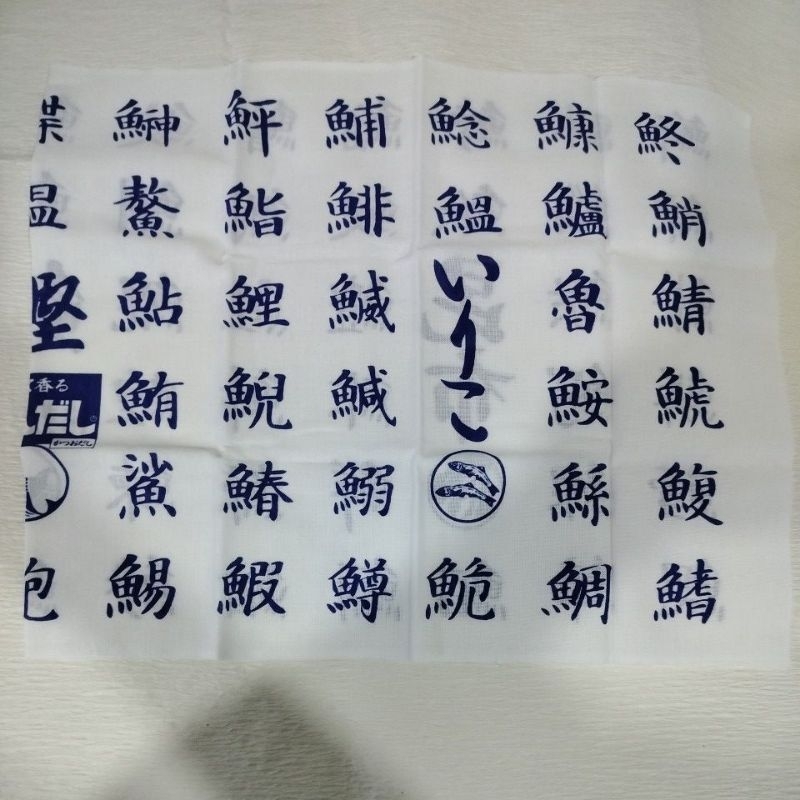 鮗
鮹
鯖
鯱
鰒
鰭
鱇
鱸
魯
鮟
鯀
鯛
鯰
鰮
いりこ
鮠
鯆
鯡
鰄
鰔
鰯
鱒
鮃
鮨
鯉
鯢
鰆
鰕
鰰
鰲
鮎
鮪
鯊
鯣
香る
だし
かつおだし